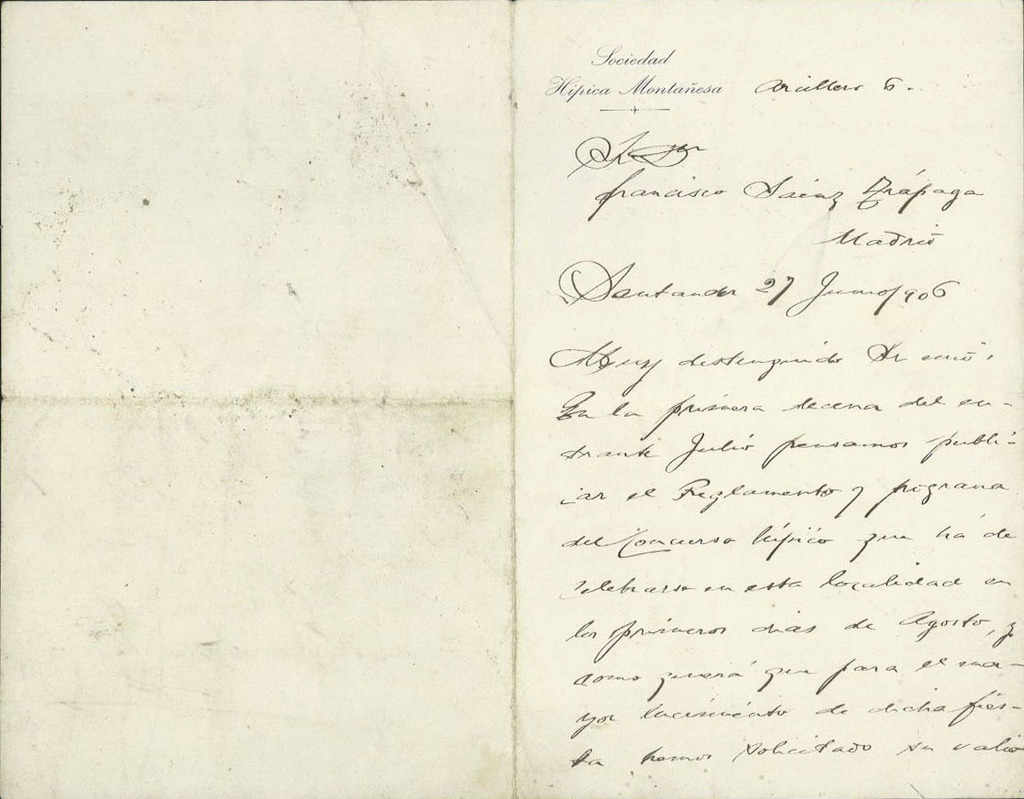 Sociedad
Hípica Montañesa Arcillero 6.
Sr Dn
Francisco Sáinz Trápaga
Madrid
Santander 27 Junio/906
Muy distinguido Sr mió:
En la primera decena del en-
trante Julió pensamos publi-
car el Reglamento y programa
del Concurso hípico que há de
celebrarse en esta localidad en
los primeros dias de Agosto, y
como quierá que para el ma-
yor lucimiénto de dicha fies-
ta hemos solicitado su valio